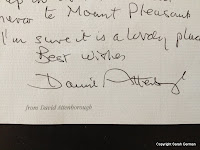 never to Mount Pleasant
I'm sure it is a lovely place
Best wishes
David Attenborough
from David Attenborough
Copyright Sarah Gorman